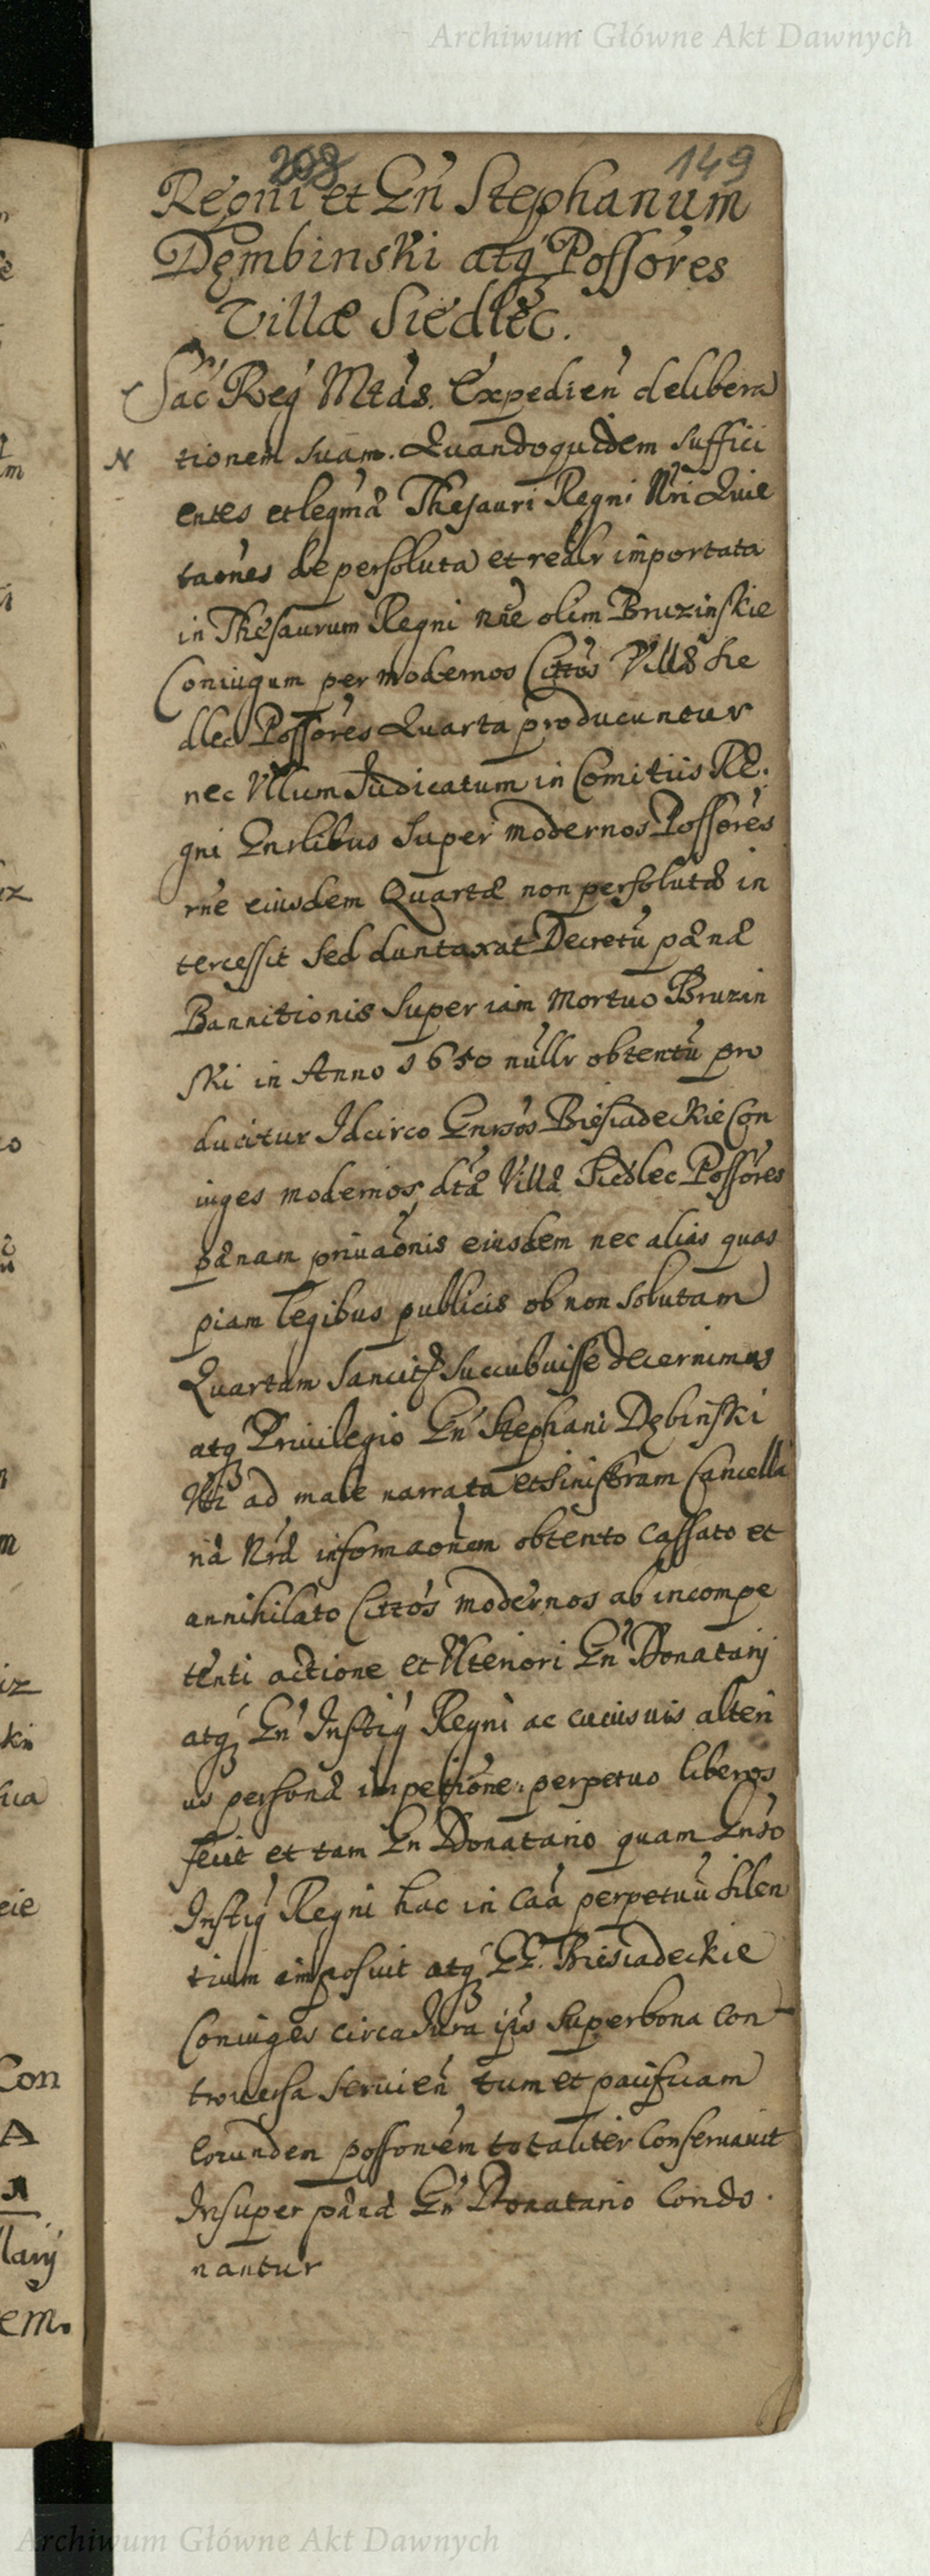 Archiwum Główne Akt Dawnych
208 149
Regni et Gn̄ Stephanum
Dembinski atq Possores
Villæ Siedlec.
Sac Reg Mtas. Expedien delibera
N tionem suam. Quandoquidem suffici
entes et legmæ Thesauri Regni Nri Quie
taones de persoluta et realr importata
in Thesaurum Regni rne olim Bruzinskie
Coniugum per modernos Cittos Villæ Sie
dlec Possores Quarta producuntur
nec Vllum Judicatum in Comitiis Re.
gni Gnrlibus Super modernos Possores
rne eiusdem Quartæ non persolutæ in
tercessit Sed duntaxat Decretu pænæ
Bannitionis Super iam Mortuo Bruzin
ski in Anno 1650 nullr obtentu pro
ducitur Idcirco Gnrsos Biesiadeckie Con
iuges modernos dtæ Villæ Siedlec Possores
pænam priuaonis eiusdem nec alias quas
piam legibus publicis ob non Solutam
Quartam Sancit Succubuisse decernimus
atq Priuilegio Gn Stephani Dębinski
Vti ad male narrata et Sinistram Cancella
riæ Nræ informaonem obtento Cassato et
annihilato Cittos modernos ab incompe
tenti actione et Vlteriori Gn Donatarij
atq Gn Instig Regni ac cuiusuis alteri
us personæ impetione perpetuo liberos
fecit et tam Gn Donatario quam Gnso
Instig Regni hac in caa perpetuu Silen
tium imposuit atq GG. Biesiadeckie
Coniuges circa Jura ipis Super bona Con
trouersa Seruien tum et pacificam
eorundem possonem totaliter Conseruauit
Insuper pænæ Gn Donatario Condo.
nantur
Archiwum Główne Akt Dawnych